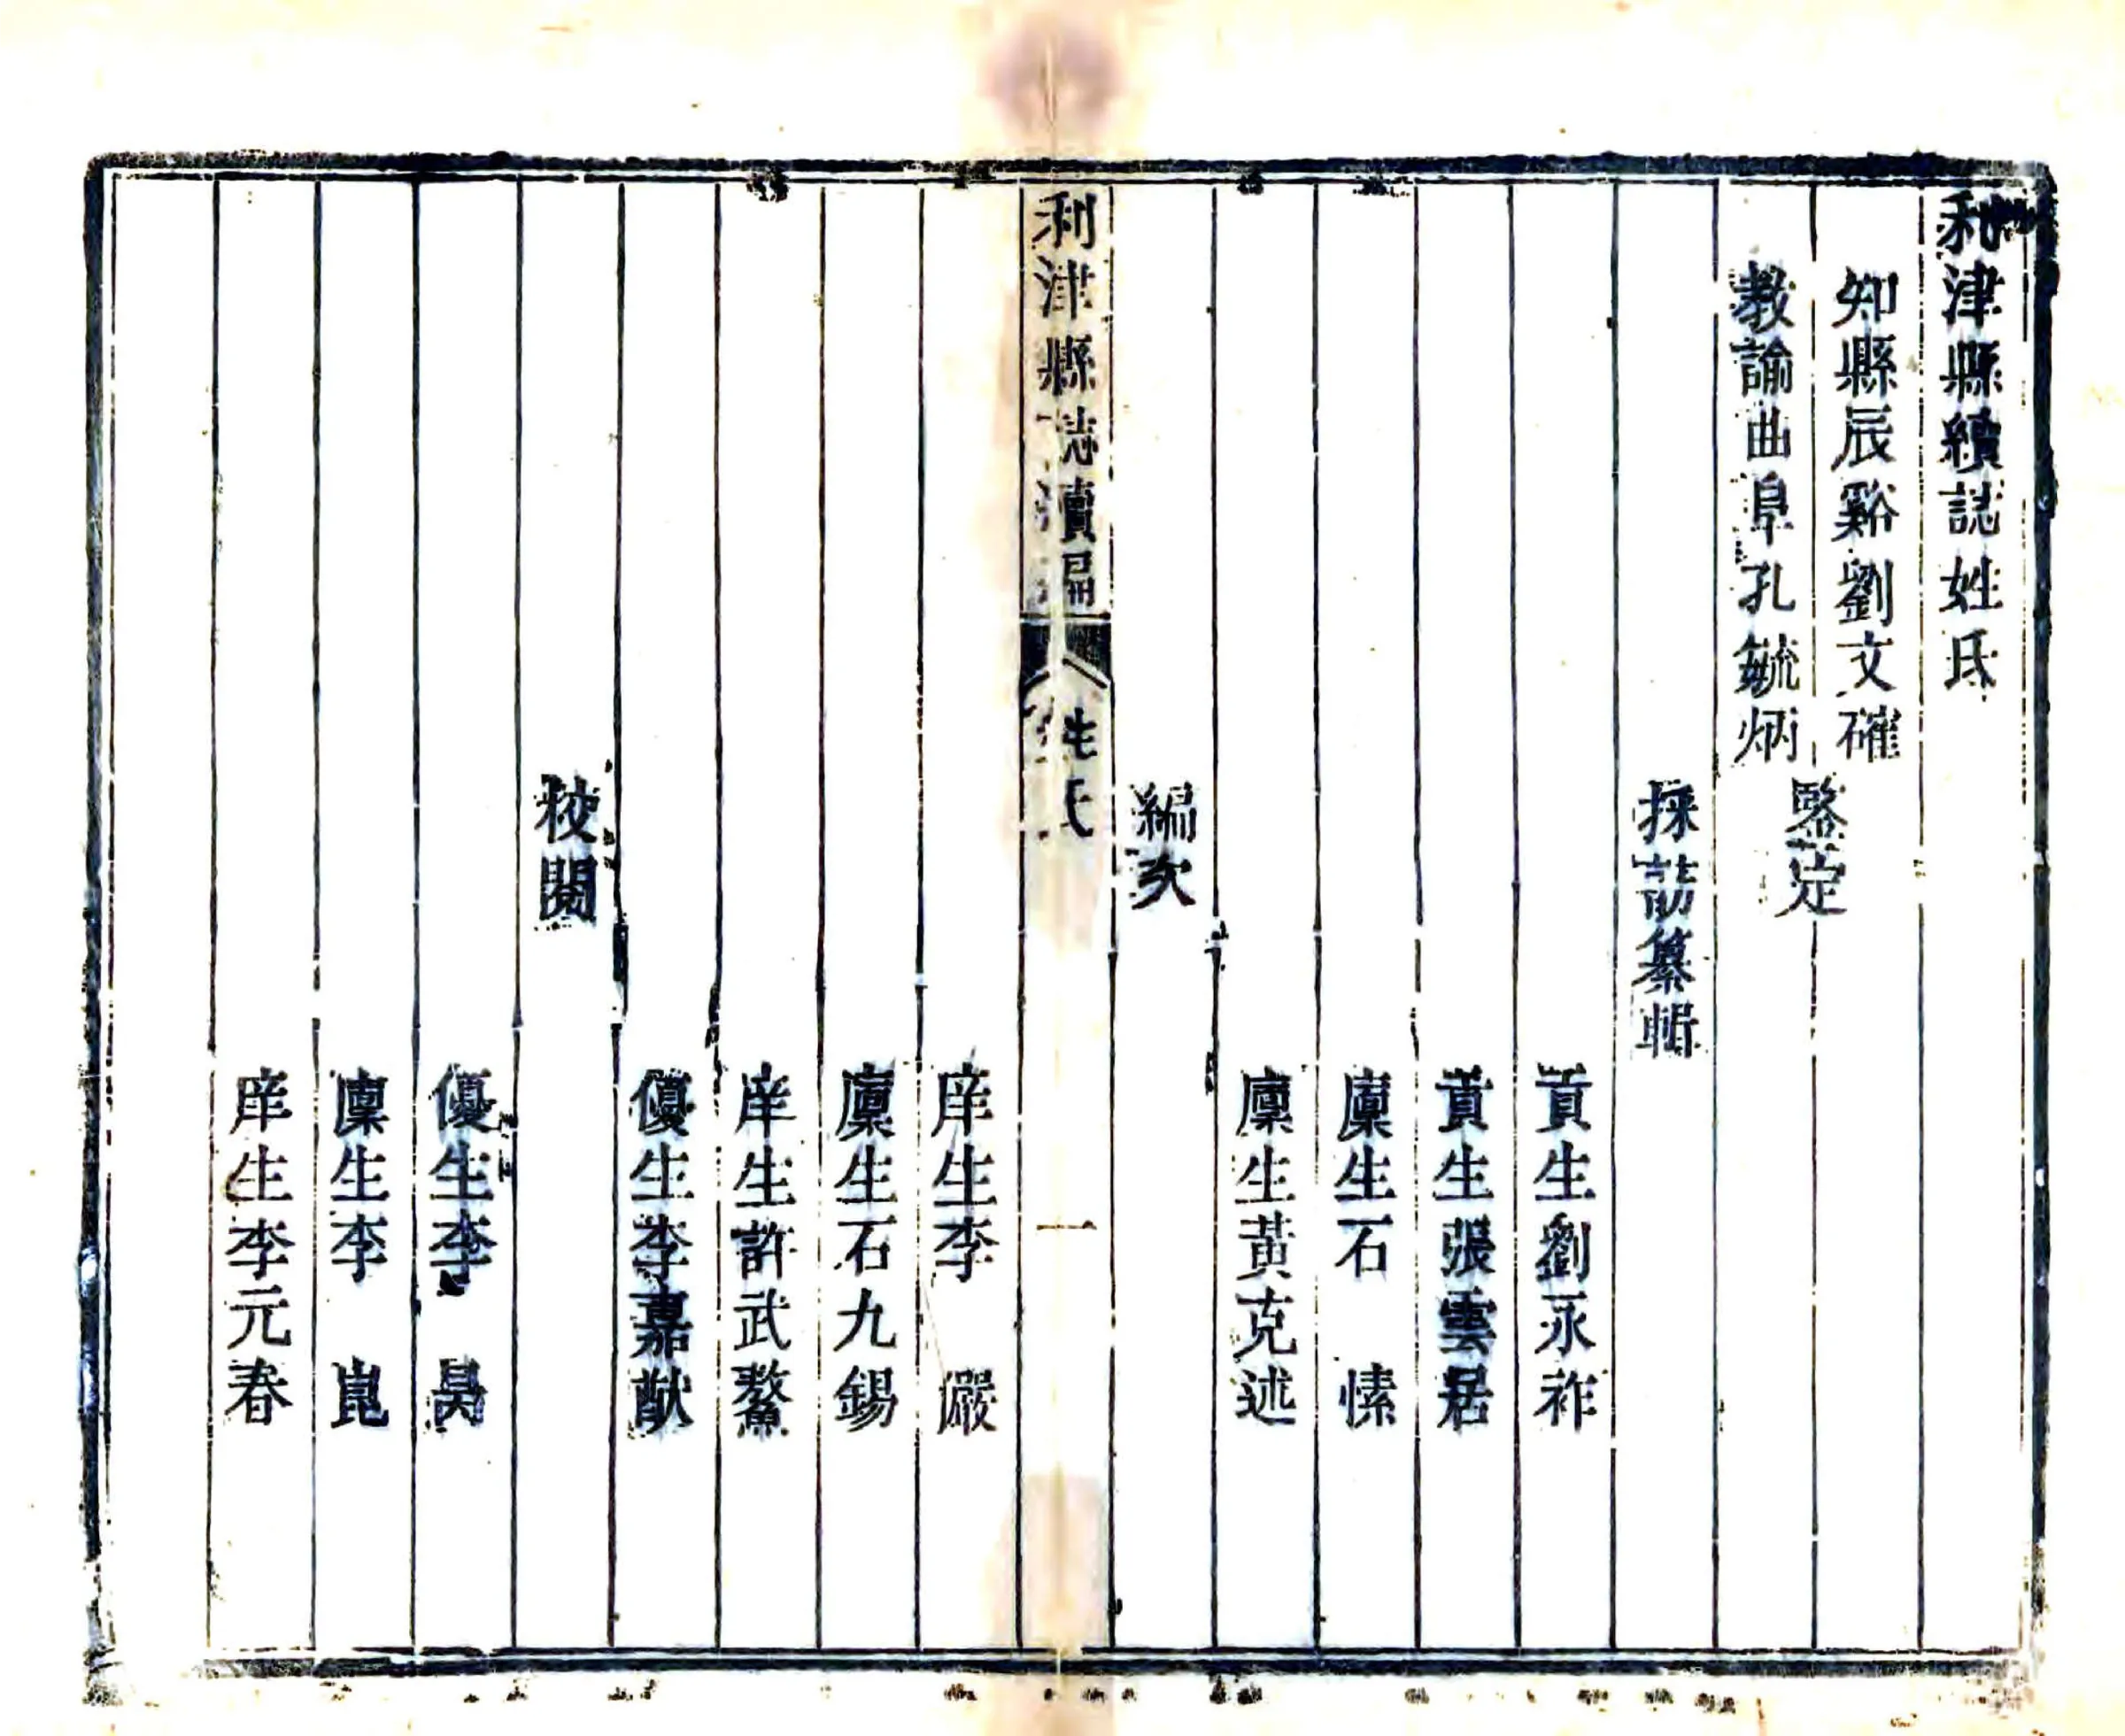 利津縣續誌姓氏
知縣辰谿劉文確
教諭曲阜孔毓炳
鑒定
採訪纂輯
貢生劉永祚
貢生張雲居
廩生石　愫
廩生黃克述
編次
利津縣志續編
姓氏
一
庠生李　儼
廩生石九錫
庠生許武鰲
優生李嘉猷
校閱
優生李　昊
廩生李　崑
庠生李元春